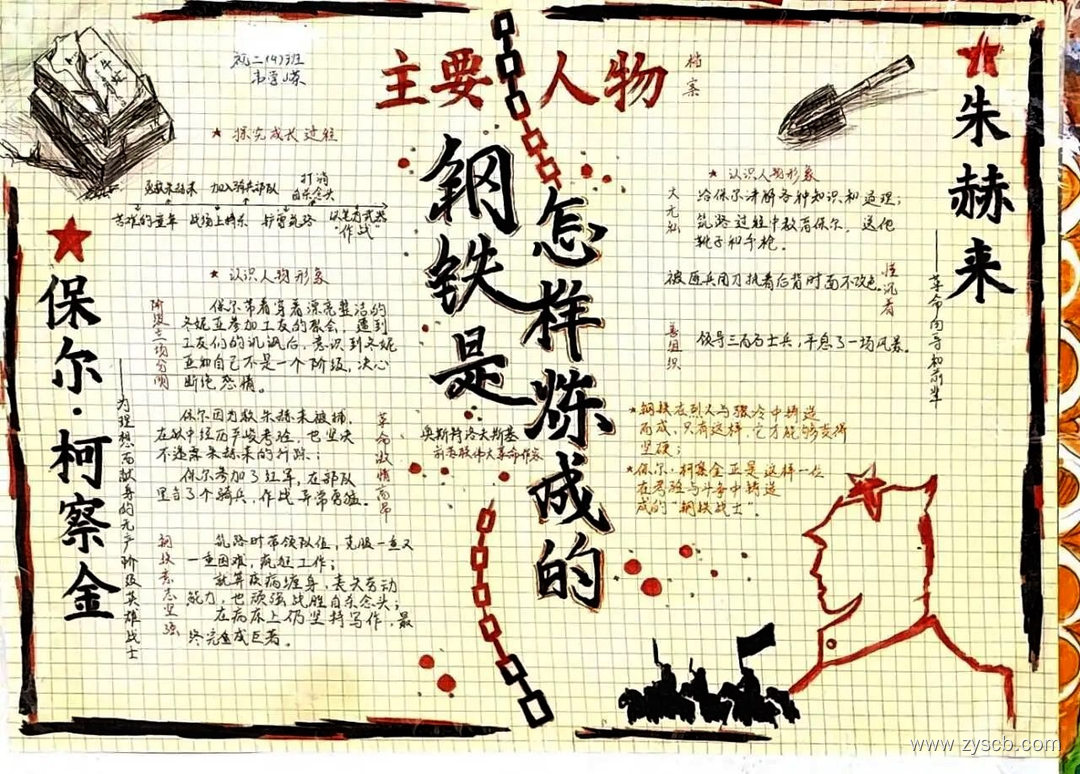 初二(4)班
主要人物
档案
钢铁是
怎样炼成的
奥斯特洛夫斯基
前苏联伟大革命作家
保尔·柯察金
——为理想而献身的无产阶级英雄战士
★ 探究成长过程
加入骑兵部队
打消
自杀念头
苦难的童年
战场上
以笔为武器
"作战"
★ 认识人物形象
阶级立场分明
保尔带着穿着漂亮整洁的
冬妮亚参加工友的聚会，遭到
工友们的讥讽后，意识到冬妮
亚和自己不是一个阶级，决心
断绝恋情。
革命激情高昂
保尔因为救朱赫来被捕，
在狱中经历严峻考验，也坚决
不透露朱赫来的行踪；
保尔参加了红军，在部队
里当了个骑兵，作战异常勇猛。
钢铁意志坚强
筑路时带领队伍，克服一重又
一重困难，疯狂工作；
就算疾病缠身，丧失劳动
能力，也顽强战胜自杀念头；
在病床上仍坚持写作，最
终完成巨著。
朱赫来
——革命向导和前辈
★ 认识人物形象
大无私
给保尔讲解各种知识和道理；
筑路过程中教育保尔，送他
靴子和手枪。
被匪兵用刀执着后背时面不改色。
善组织
领导三百名士兵，平息了一场风暴。
★钢铁在烈火与骤冷中铸造
而成，只有这样，它才能够变得
坚硬；
★保尔·柯察金正是这样一位
在考验与斗争中铸造
成的"钢铁战士"。
www.zyscb.com